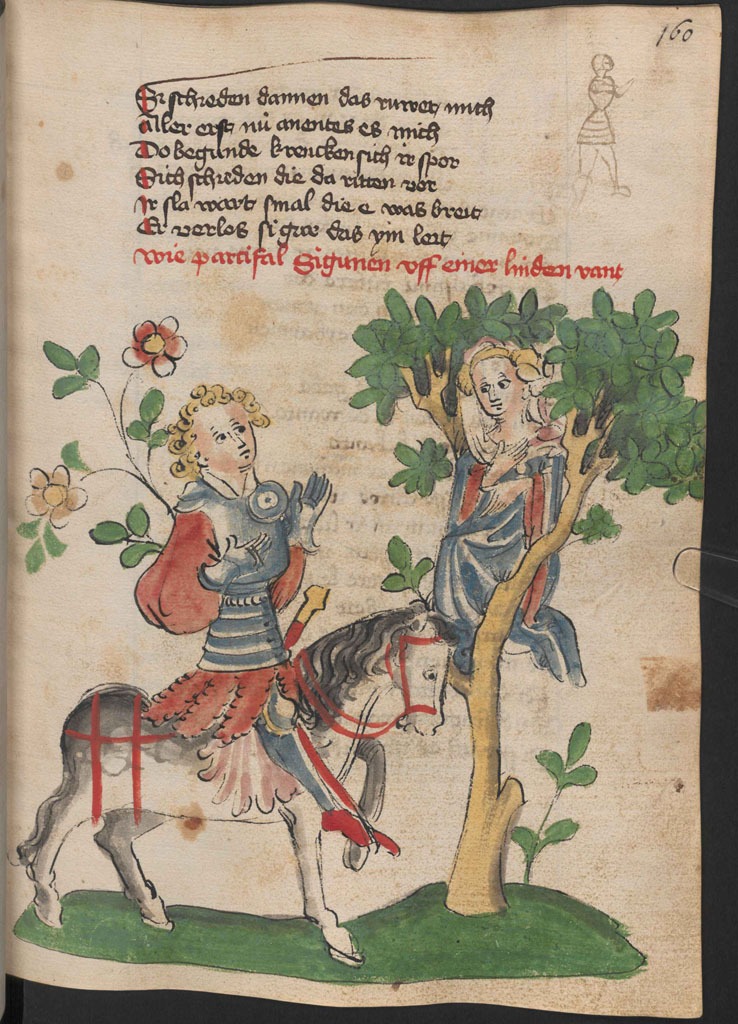 160
Sr schieden dannen das ruwet mich
Aller erst nů anentes es mich
Do begunde krencken sich ir spor
Sich schieden die da ritten vor
Ir sla wart smal die e was breit
Er verlos si gar das ym leit
wie partifal Sigunen vff einer linden vant